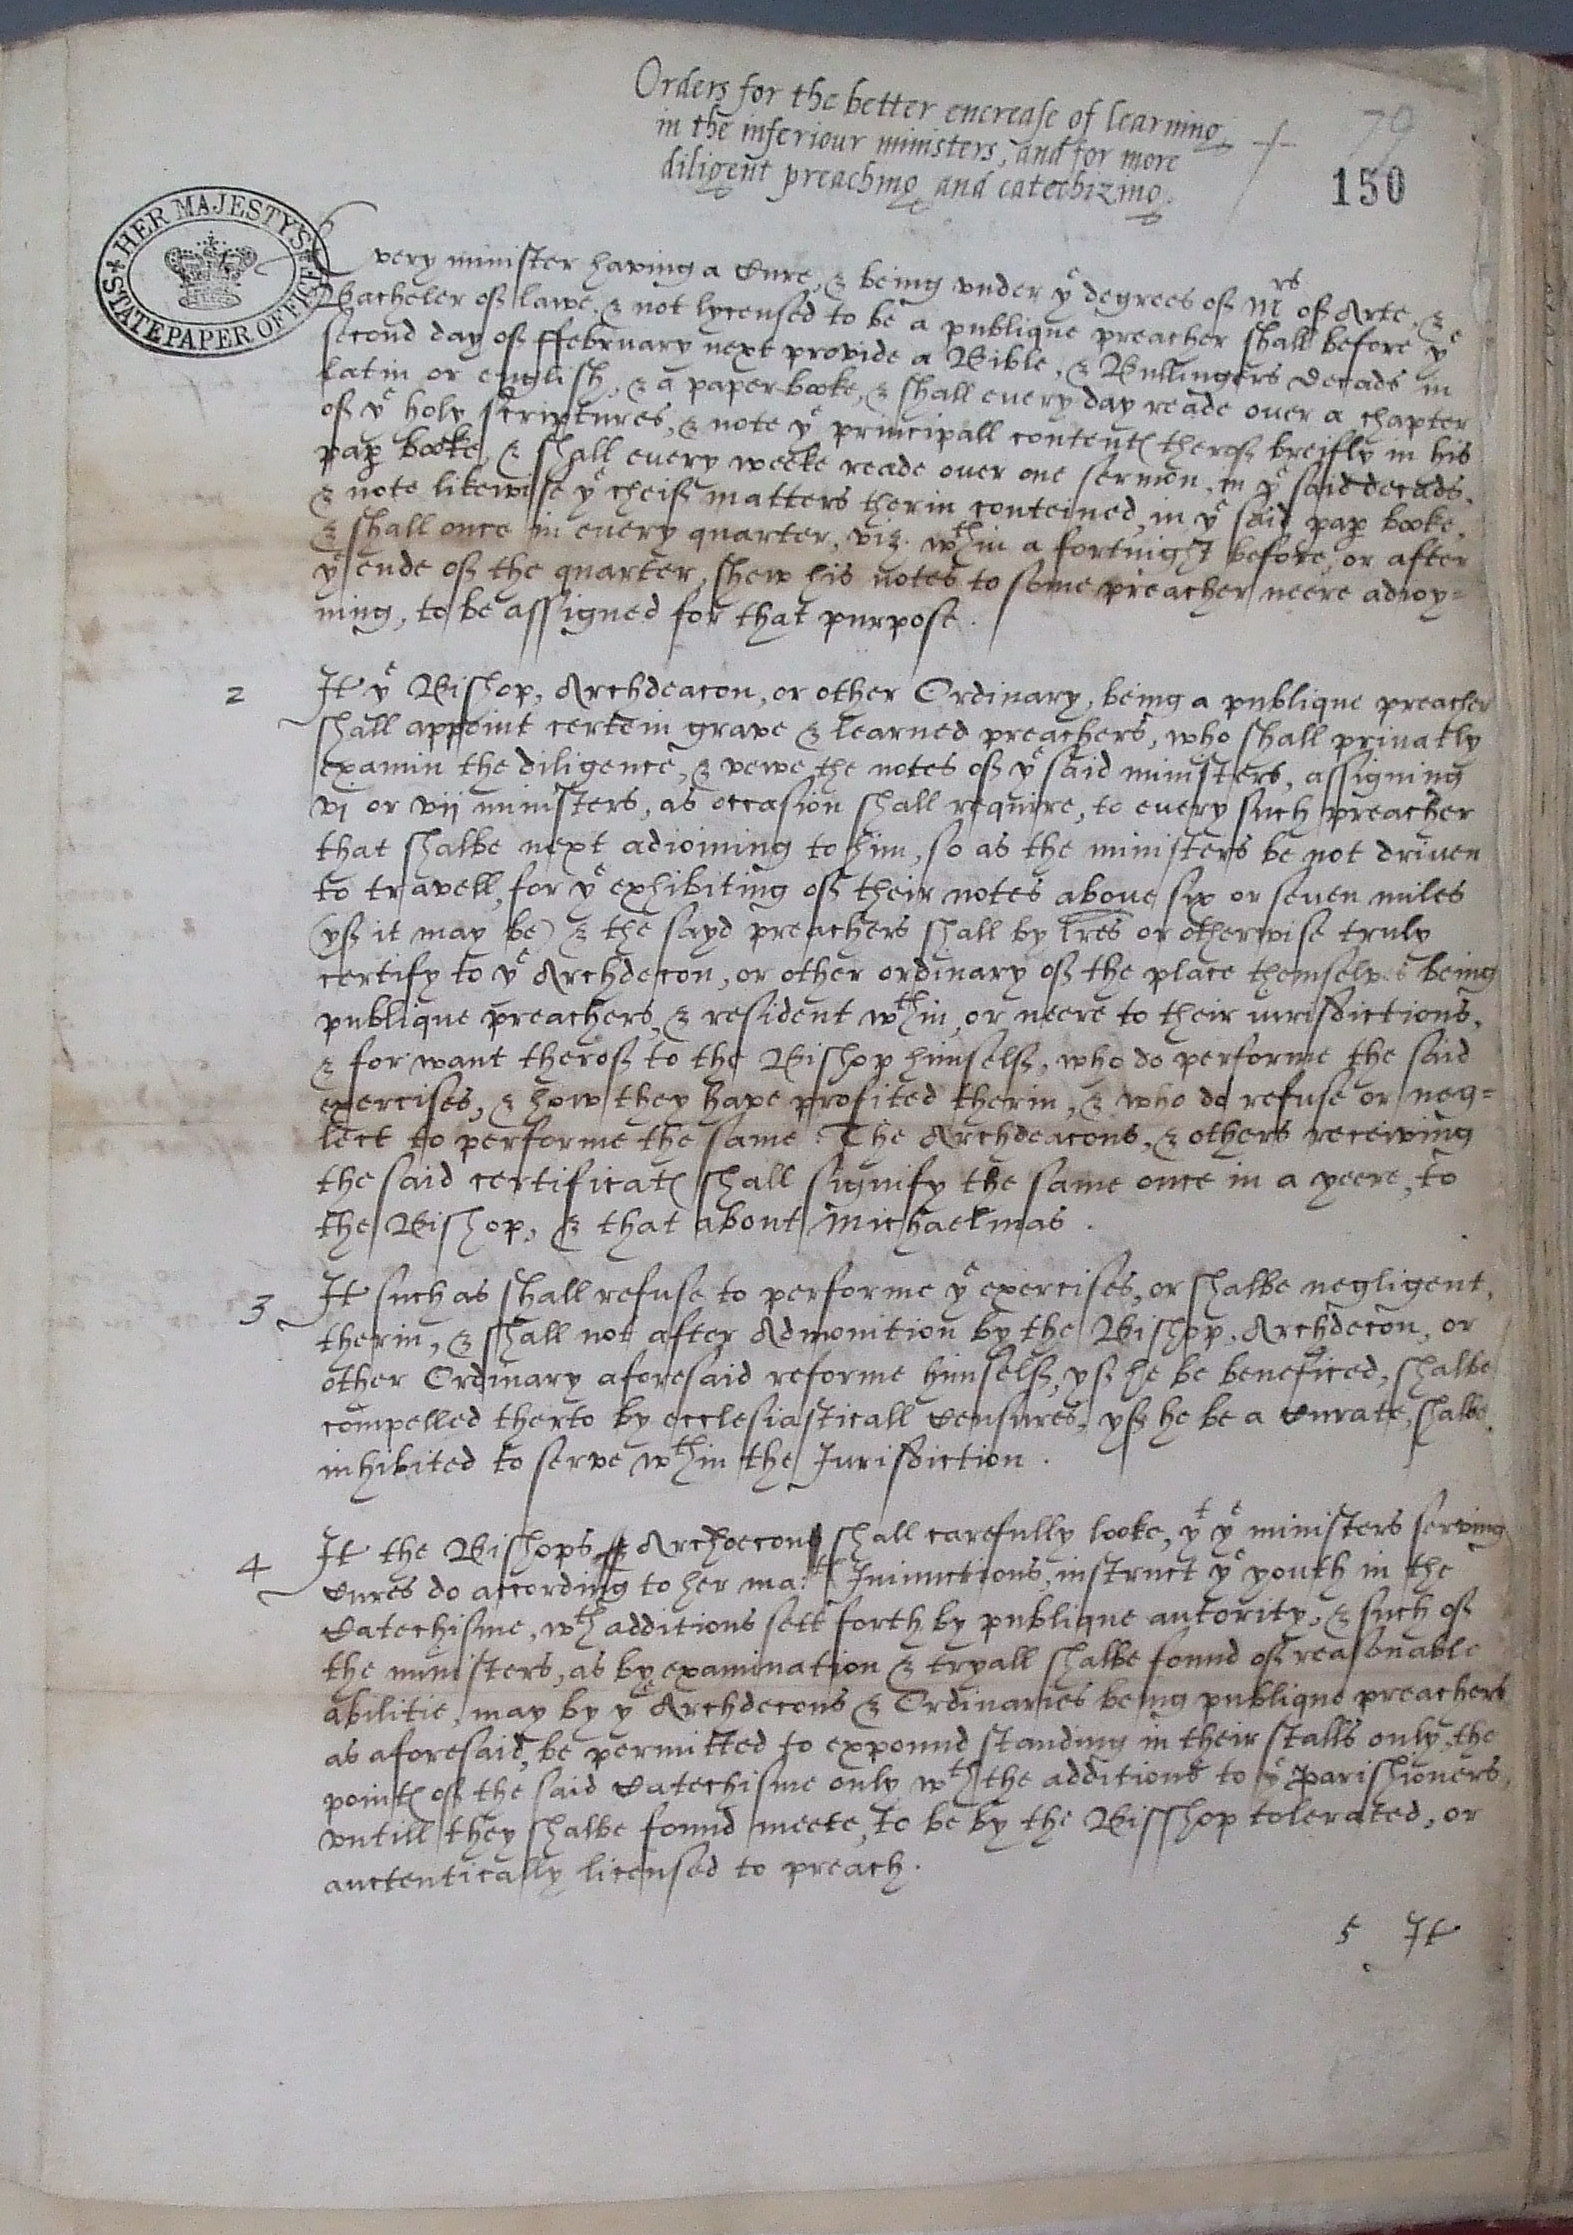 Orders for the better encrease of learning
in the inferiour ministers, and for more
diligent preaching and catechizing.
79
150
HER MAJESTYS STATE PAPER OFFICE
Every minister having a Cure, & being vnder yᵉ degrees of Mʳˢ of Arte, &
Bacheler of lawe, & not lycensed to be a publique preacher shall before yᵉ
second day of ffebruary next provide a Bible, & Bullingers decads in
latin or english, & a paper booke, & shall euery day reade ouer a chapter
of yᵉ holy scriptures, & note yᵉ principall contentę therof breifly in his
pap̲ booke, & shall euery weeke reade ouer one sermon, in yᵉ said decads,
& note likewise yᵉ cheif matters therin conteined, in yᵉ said pap̲ booke,
& shall once in euery quarter, viz. wᵗʰin a fortnight before, or after
yᵉ ende of the quarter, shew his notes to some preacher neere adioy=
ning, to be assigned for that purpose.
2 It yᵉ Bishop, Archdeacon, or other Ordinary, being a publique preacher
shall appoint certein grave & learned preachers, who shall priuatly
examin the diligence, & vewe the notes of yᵉ said ministers, assigning
vj or vij ministers, as occasion shall require, to euery such preacher
that shalbe next adioining to him, so as the ministers be not driuen
to travell, for yᵉ exhibiting of their notes aboue six or seuen miles
(yf it may be) & the sayd preachers shall by lr̃es or otherwise truly
certify to yᵉ Archdecon, or other ordinary of the place themselves being
publique preachers, & resident wᵗʰin, or neere to their iurisdictions,
& for want therof to the Bishop himself, who do performe the said
exercises, & how they have profited therin, & who do refuse or neg=
lect to performe the same. The Archdeacons, & others receiving
the said certificatę shall signify the same once in a yeere, to
the Bishop, & that about Michaelmas.
3 It such as shall refuse to performe yᵉ exercises, or shalbe negligent,
therin, & shall not after Admonition by the Bishop, Archdecon, or
other Ordinary aforesaid reforme himself, yf he be beneficed, shalbe
compelled therto by ecclesiasticall Censures, yf he be a Curate, shalbe
inhibited to serve wᵗʰin the Jurisdiction.
4 It the Bishops & Archdecons shall carefully looke, yᵗ yᵉ ministers serving
Cures do according to her maᵗˢ Iniunctions, instruct yᵉ youth in the
Catechisme, wᵗʰ additions sett forth by publique autority, & such of
the ministers, as by examination & tryall shalbe found of reasonable
abilitie, may by yᵉ Archdecons & Ordinaries being publique preachers
as aforesaid, be permitted to expound standing in their stalls only, the
pointę of the said Catechisme only wᵗʰ the additions to yᵉ Parishioners,
vntill they shalbe found meete, to be by the Bisshop tolerated, or
auctentically licensed to preach.
5 It